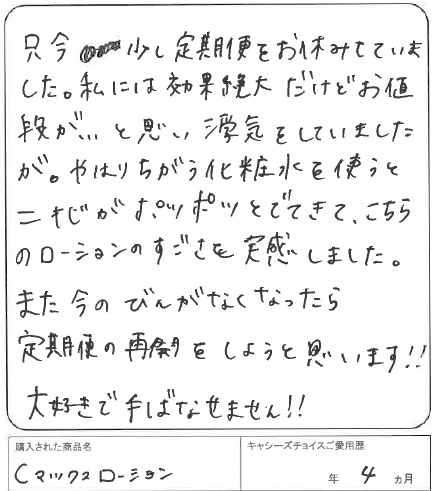 只今 少し定期便をお休みしていま
した。私には効果絶大だけどお値
段が…と思い浮気をしていました
が。やはりちがう化粧水を使うと
ニキビがポツポツとでてきて、こちら
のローションのすごさを実感しました。
また今のびんがなくなったら
定期便の再開をしようと思います!!
大好きで手ばなせません!!
購入された商品名
Cマックスローション
キャシーズチョイスご愛用歴
年 4 ヵ月